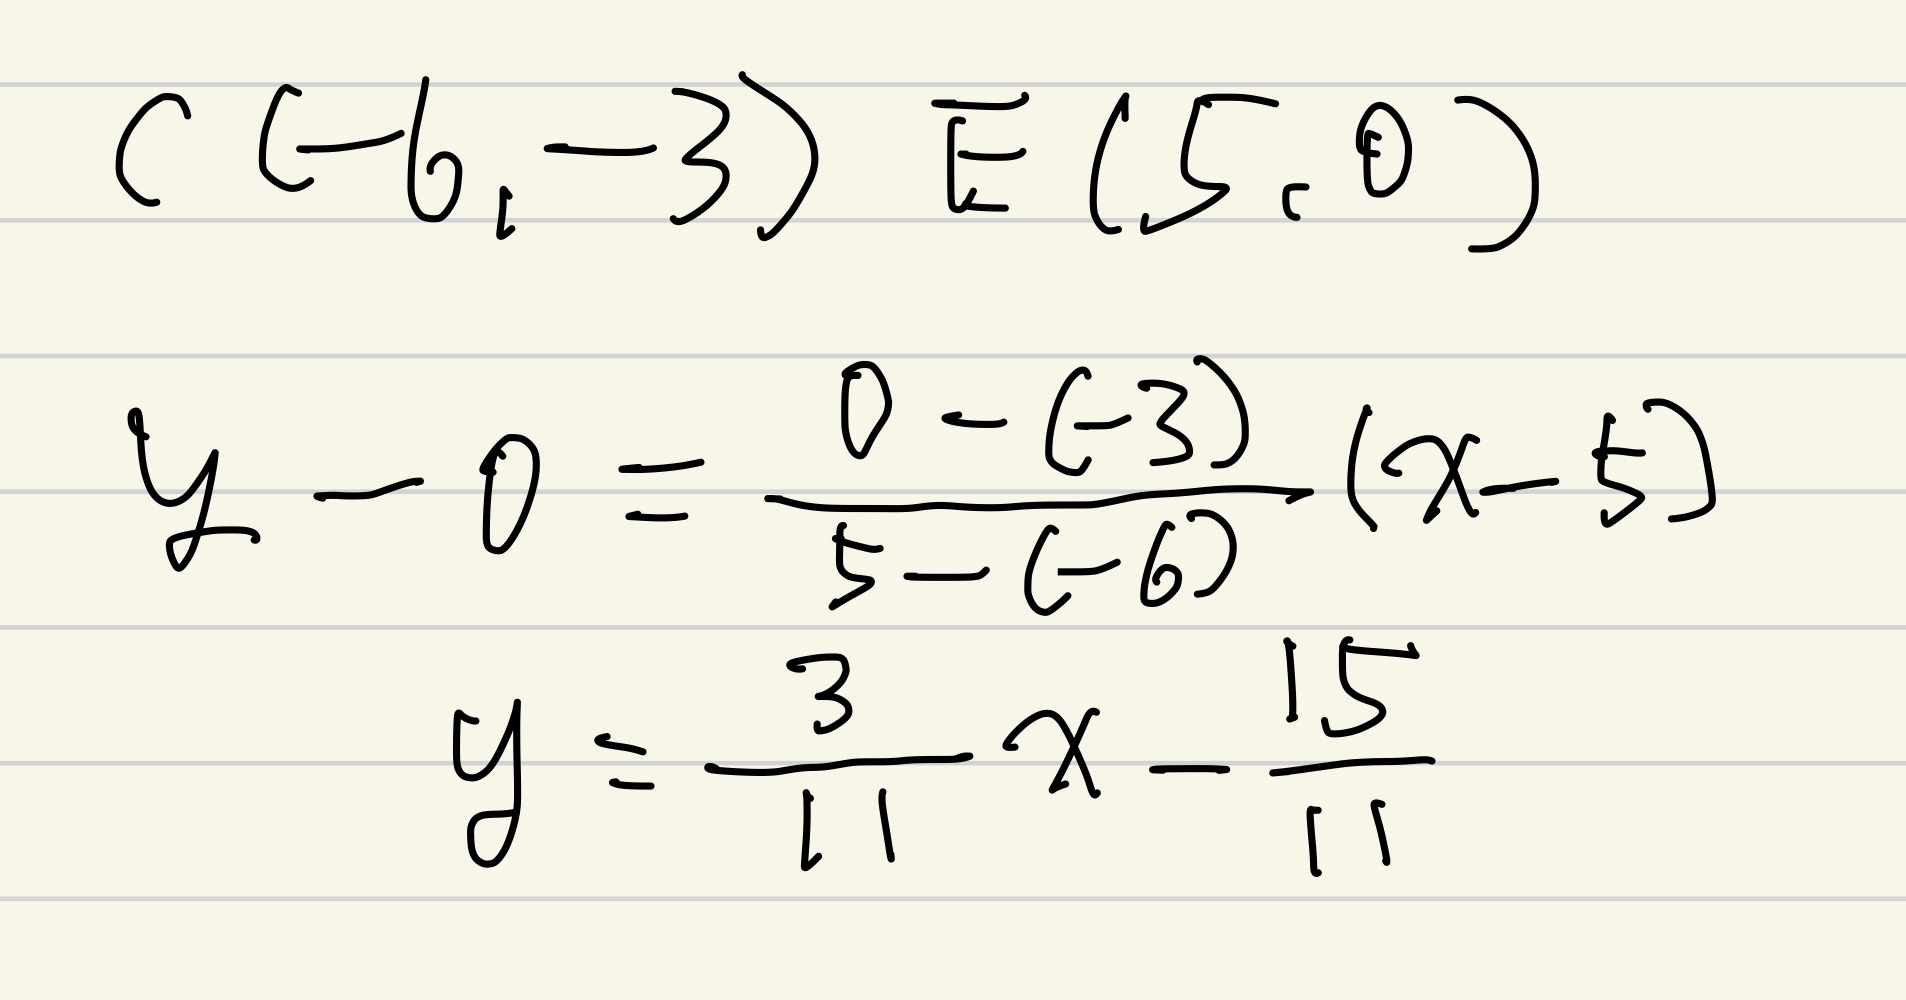 C(-6, -3) E(5, 0)
y - 0 = \frac{0 - (-3)}{5 - (-6)} (x - 5)
y = \frac{3}{11} x - \frac{15}{11}